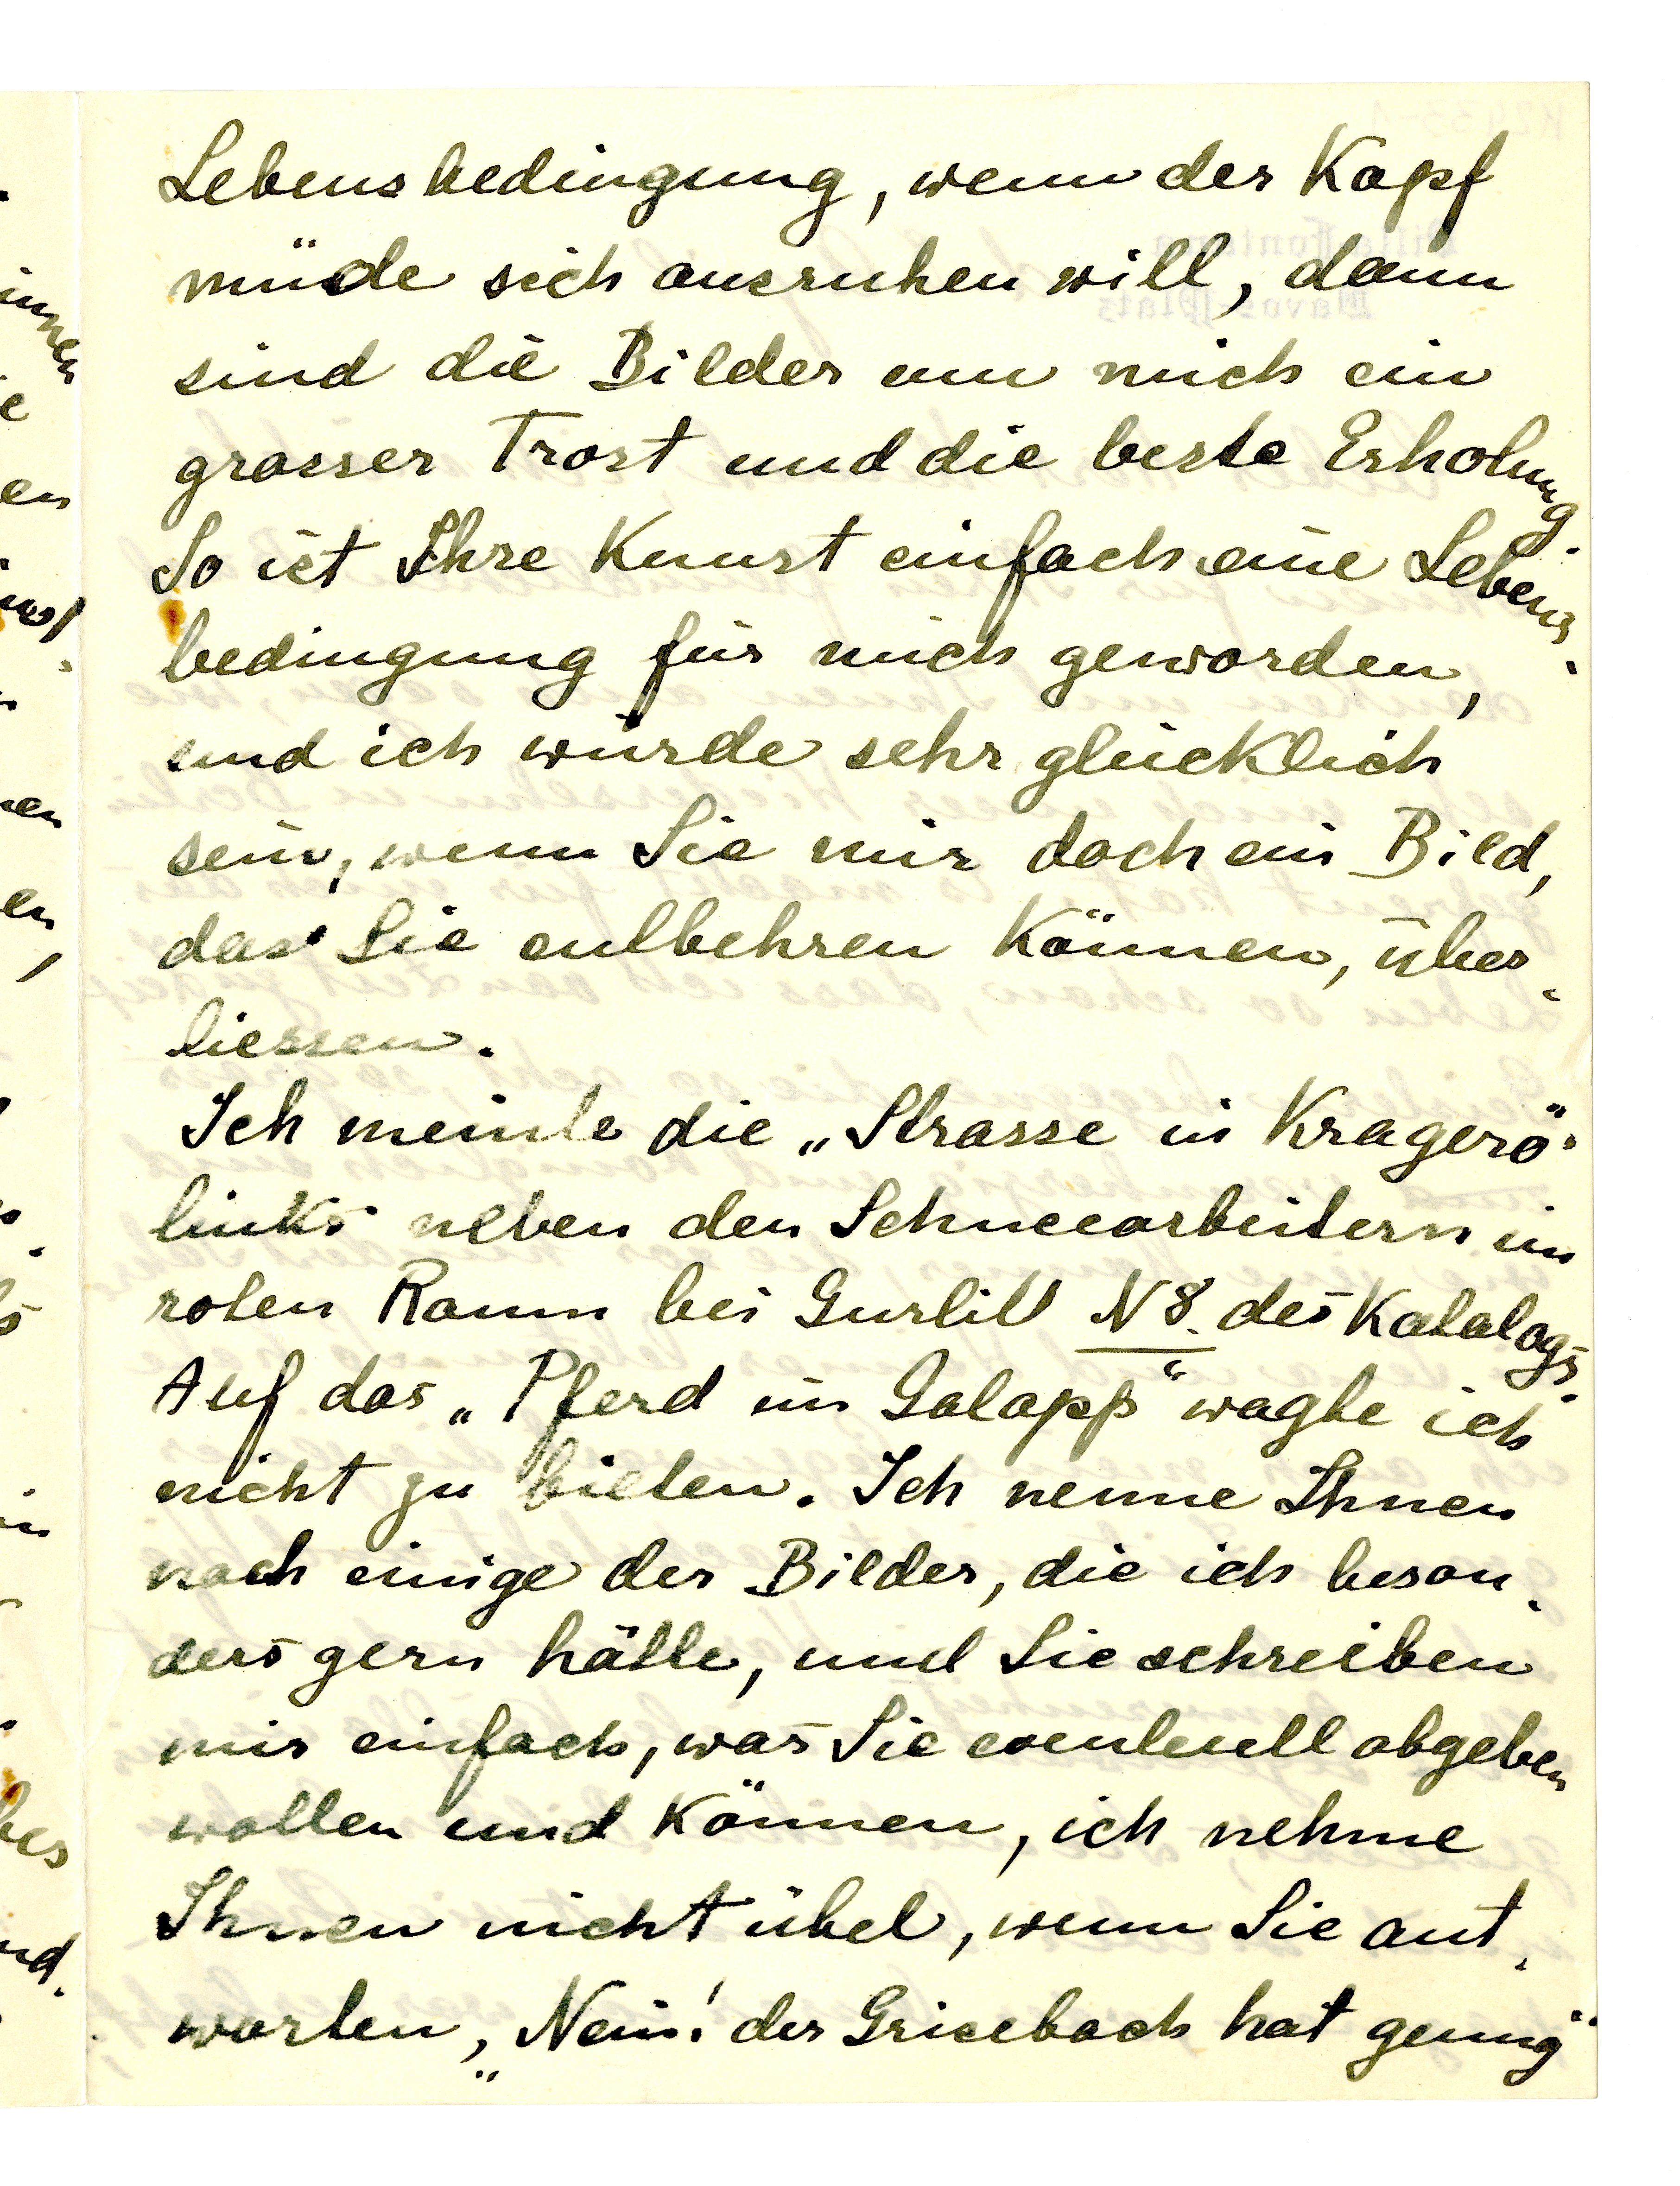 Lebensbedingung, wenn der Kopf
müde sich ausruhen will, dann
sind die Bilder um mich ein
grosser Trost und die beste Erholung.
So ist Ihre Kunst einfach eine Lebens-
bedingung für mich geworden,
und ich würde sehr glücklich
sein, wenn Sie mir doch ein Bild,
das Sie entbehren können, über-
liessen.
Ich meinte die „Strasse in Kragerö“
links neben den Schneearbeitern im
roten Raum bei Gurlitt N 8. des Katalogs.
Auf das „Pferd im Galopp“ wagte ich
nicht zu bieten. Ich nenne Ihnen
noch einige der Bilder, die ich beson-
ders gern hätte, und Sie schreiben
mir einfach, was Sie eventuell abgeben
wollen und können, ich nehme
Ihnen nicht übel, wenn Sie ant-
worten, „Nein! der Grisebach hat genug“